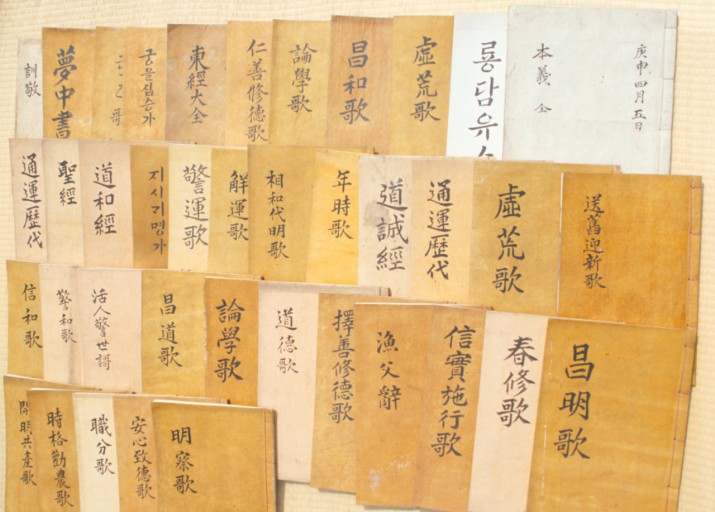 訓敬
夢中書
궁을십승가
東經大全
仁善修德歌
論學歌
昌和歌
虛荒歌
룡담유
本義 全
庚申四月五日
通運歷代
聖經
道和經
지시기명가
警運歌
解運歌
相和代明歌
年時歌
道誠經
通運歷代
虛荒歌
送舊迎新歌
信和歌
警和歌
活人警世謌
昌道歌
論學歌
道德歌
擇善修德歌
漁父辭
信實施行歌
春修歌
昌明歌
開明共產歌
時格勸農歌
職分歌
安心致德歌
明察歌